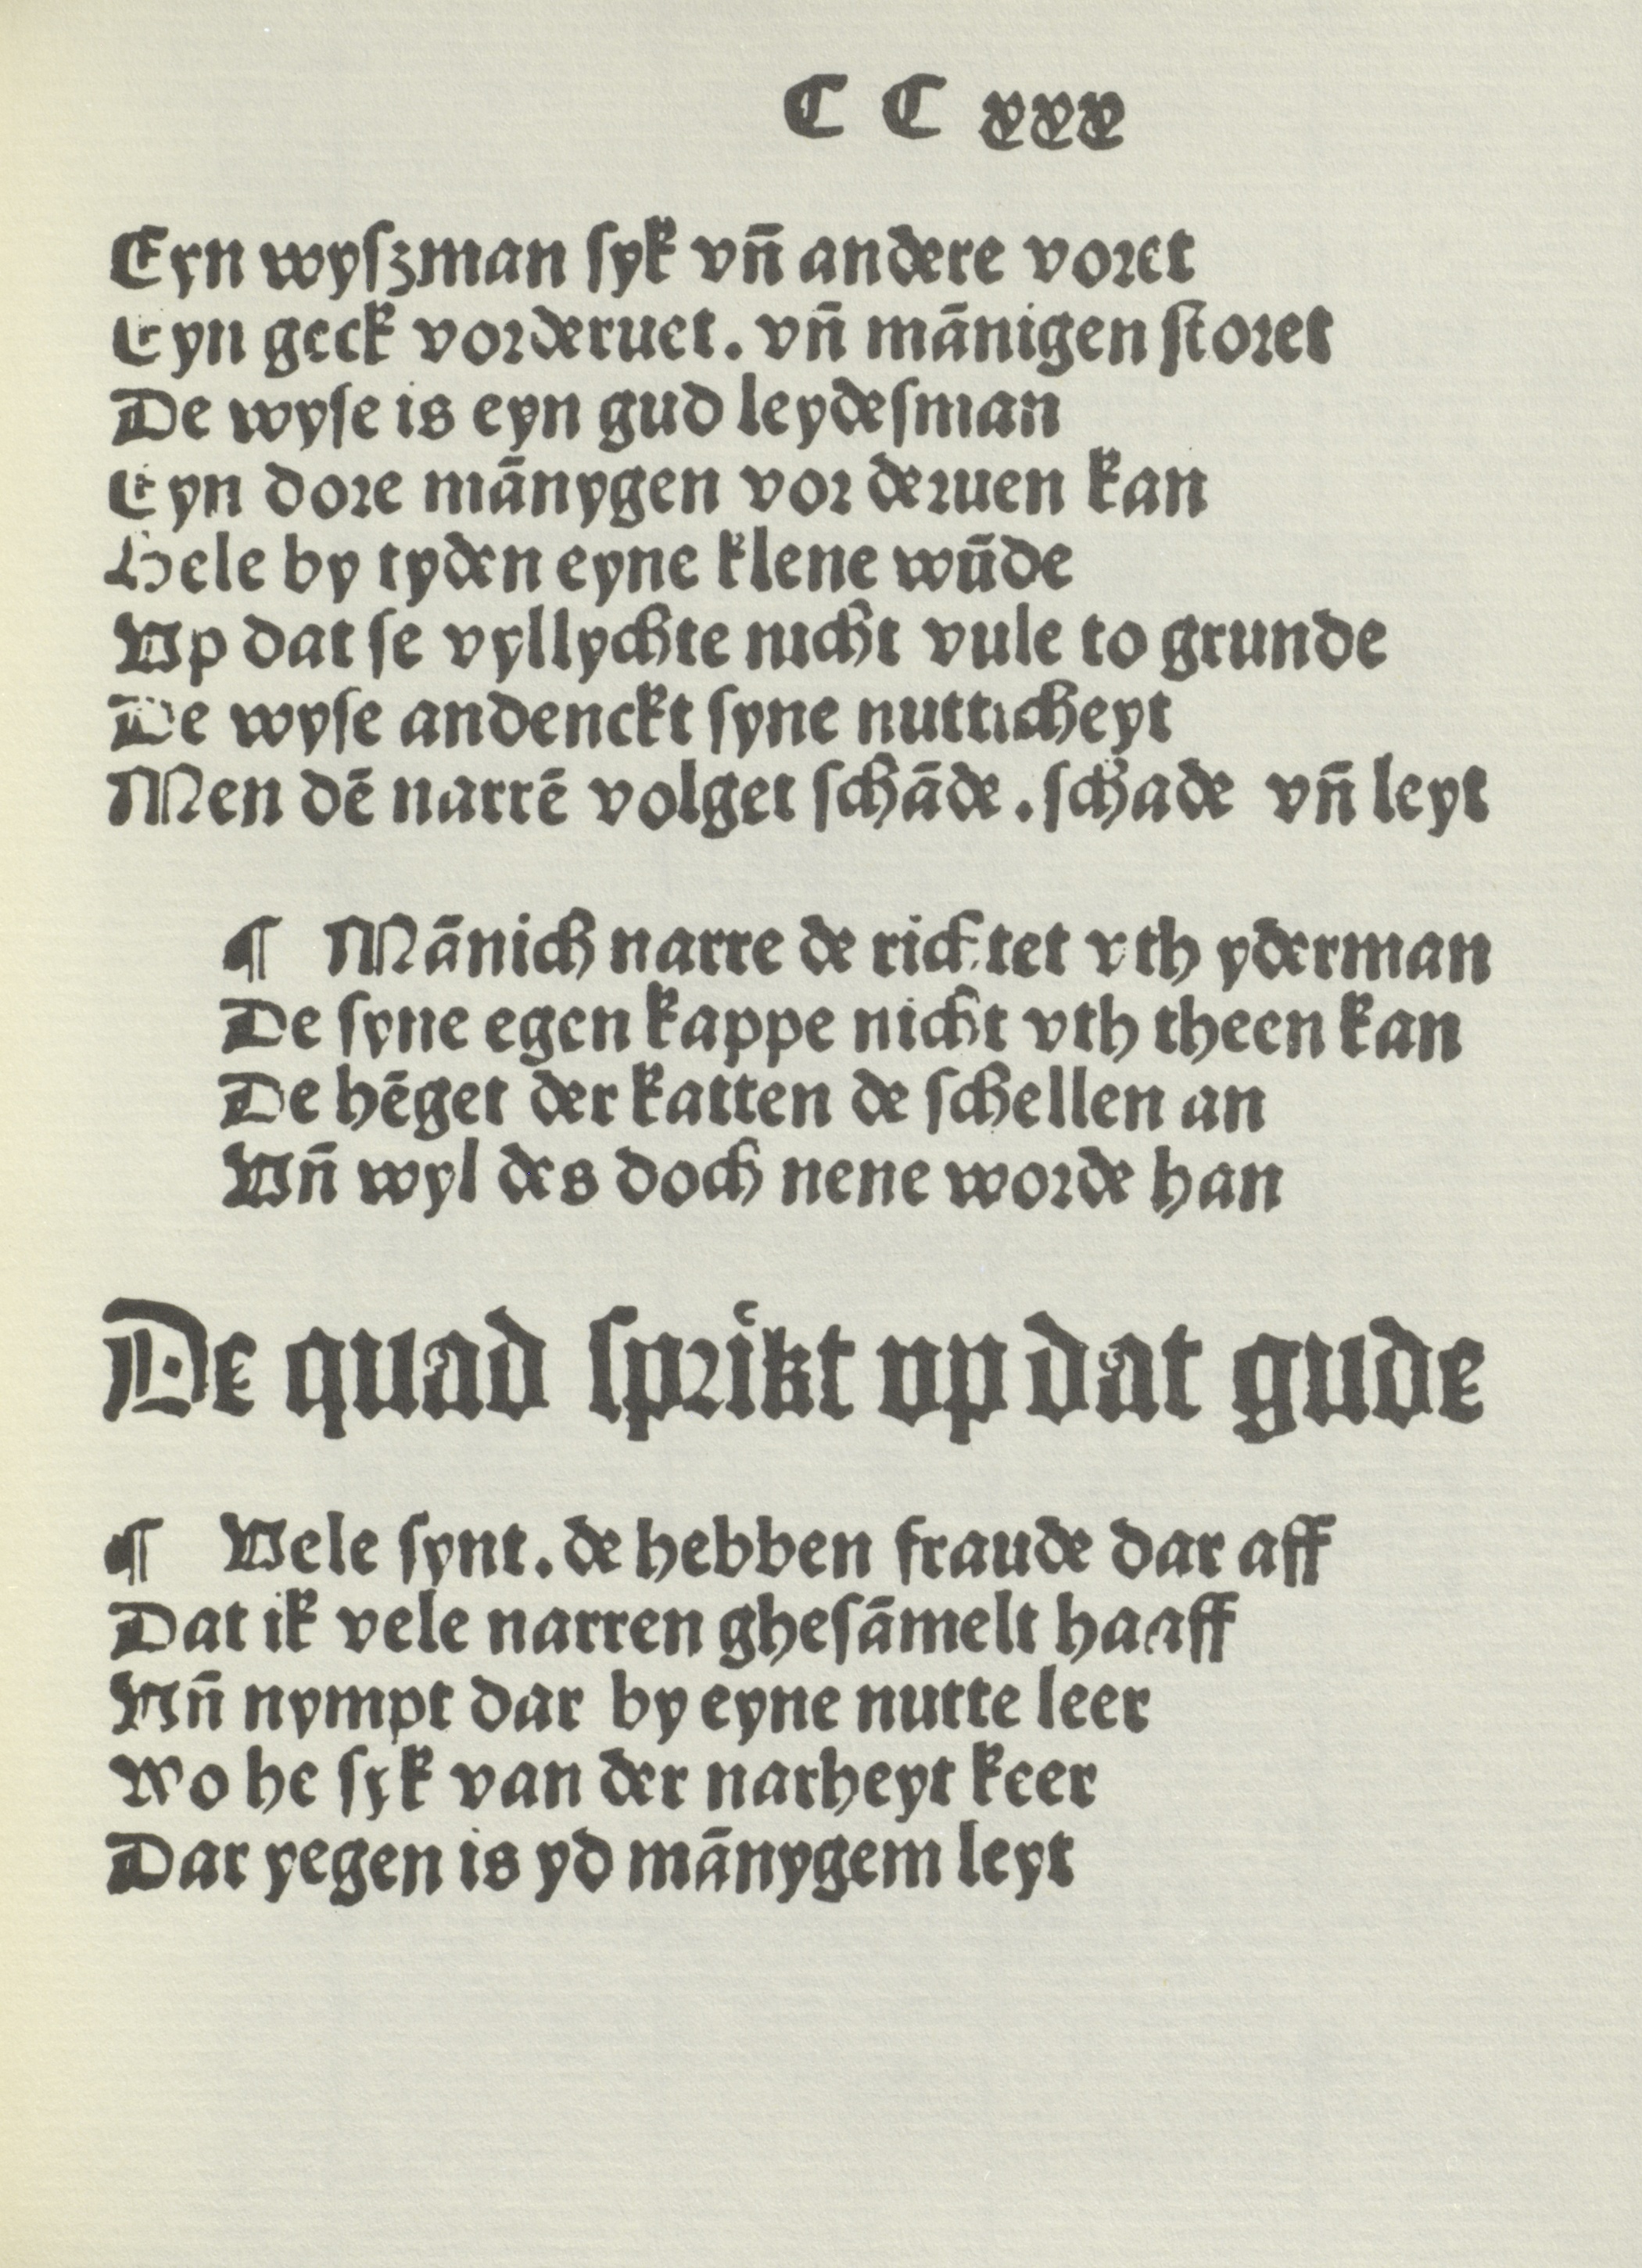 C C xxx
Eyn wyſzman ſyk vn̄ andere voret
Eyn geck vorderuet. vn̄ mānigen ſtoret
De wyſe is eyn gud leydeſman
Eyn dore mānygen vor deruen kan
Hele by tyden eyne klene wūde
Vp dat ſe vyllychte nicht vule to grunde
De wyſe andenckt ſyne nutticheyt
Men dē narrē volget ſchāde. ſchade vn̄ leyt
¶ Mānich narre de richtet vth yderman
De ſyne egen kappe nicht vth theen kan
De hēget der katten de ſchellen an
Vn̄ wyl des doch nene worde han
De quad ſprikt vp dat gude
¶ Vele ſynt. de hebben fraude dar aff
Dat ik vele narren gheſāmelt haaff
Vn̄ nympt dar by eyne nutte leer
Wo he ſyk van der narheyt keer
Dar yegen is yd mānygem leyt